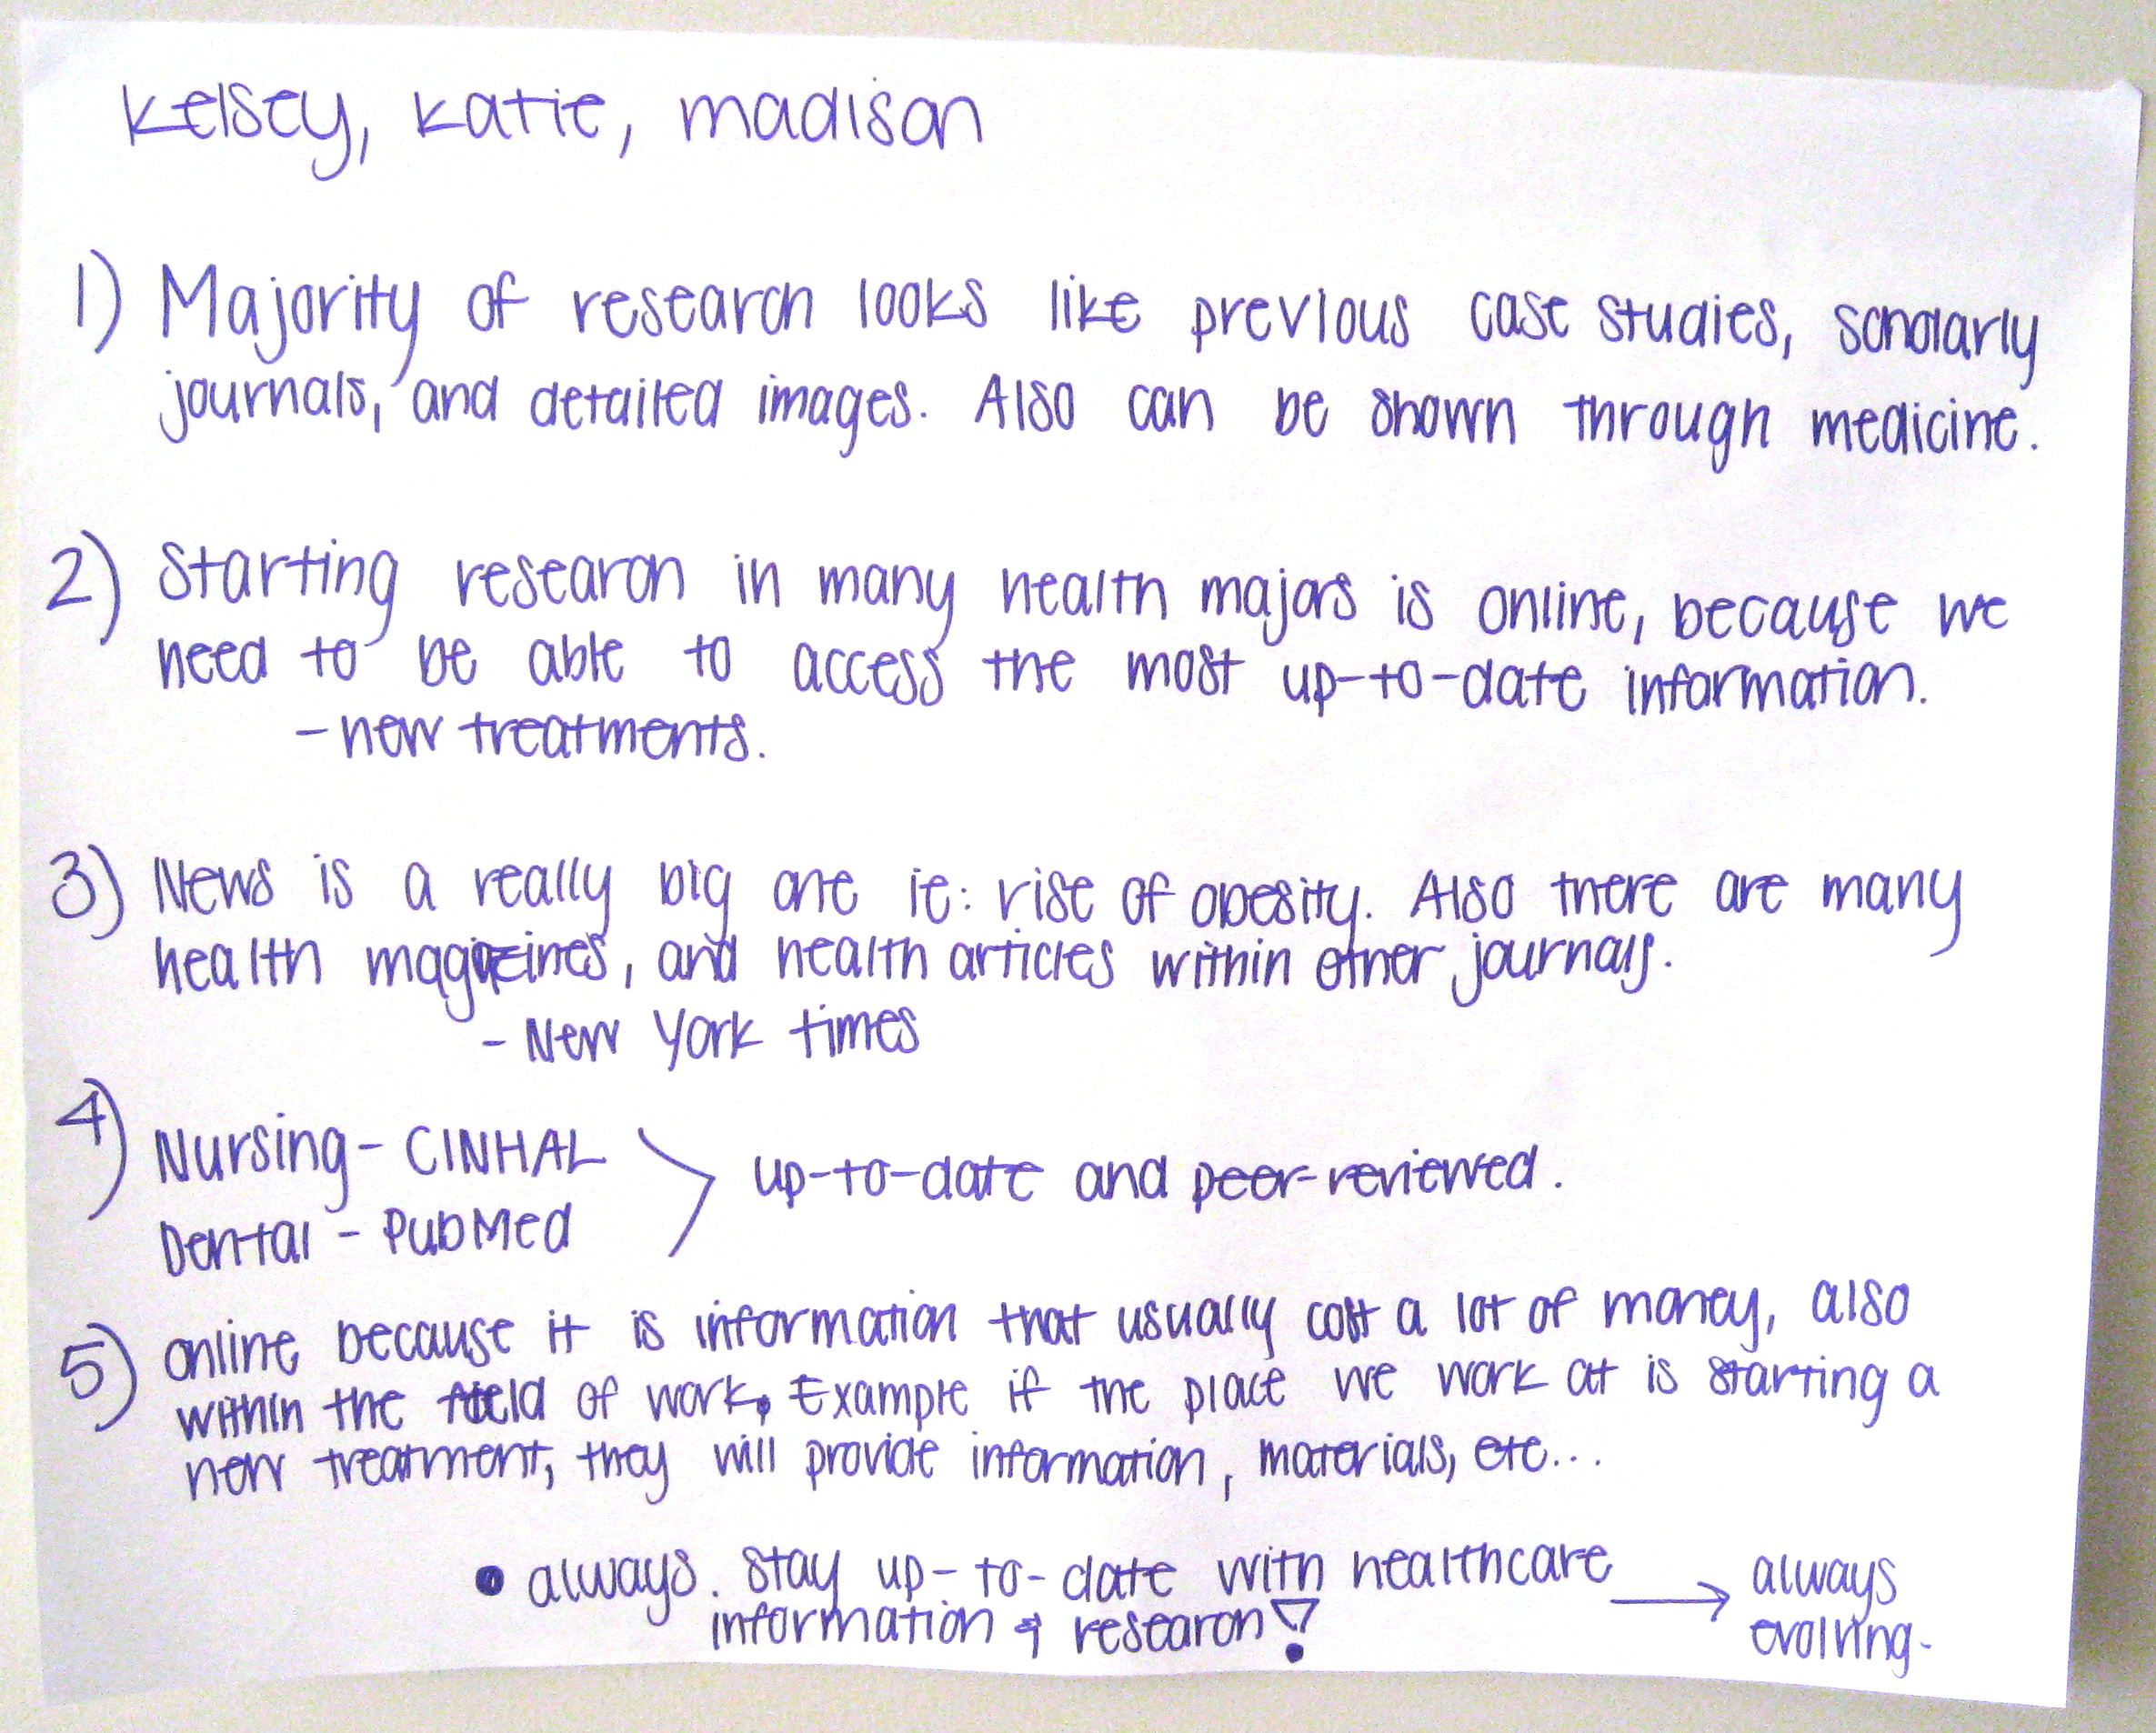 Kelsey, Katie, madison
1) Majority of research looks like previous case studies, scholarly
journals, and detailed images. Also can be shown through medicine.
2) Starting research in many health majors is online, because we
need to be able to access the most up-to-date information.
- new treatments.
3) News is a really big one ie: rise of obesity. Also there are many
health magazines, and health articles within other journals.
- New York times
4) Nursing - CINHAL
Dental - PubMed
up-to-date and peer-reviewed.
5) online because it is information that usually cost a lot of money, also
within the field of work. Example if the place we work at is starting a
new treatment, they will provide information, materials, etc...
• always. stay up-to-date with healthcare → always
information & research! evolving.